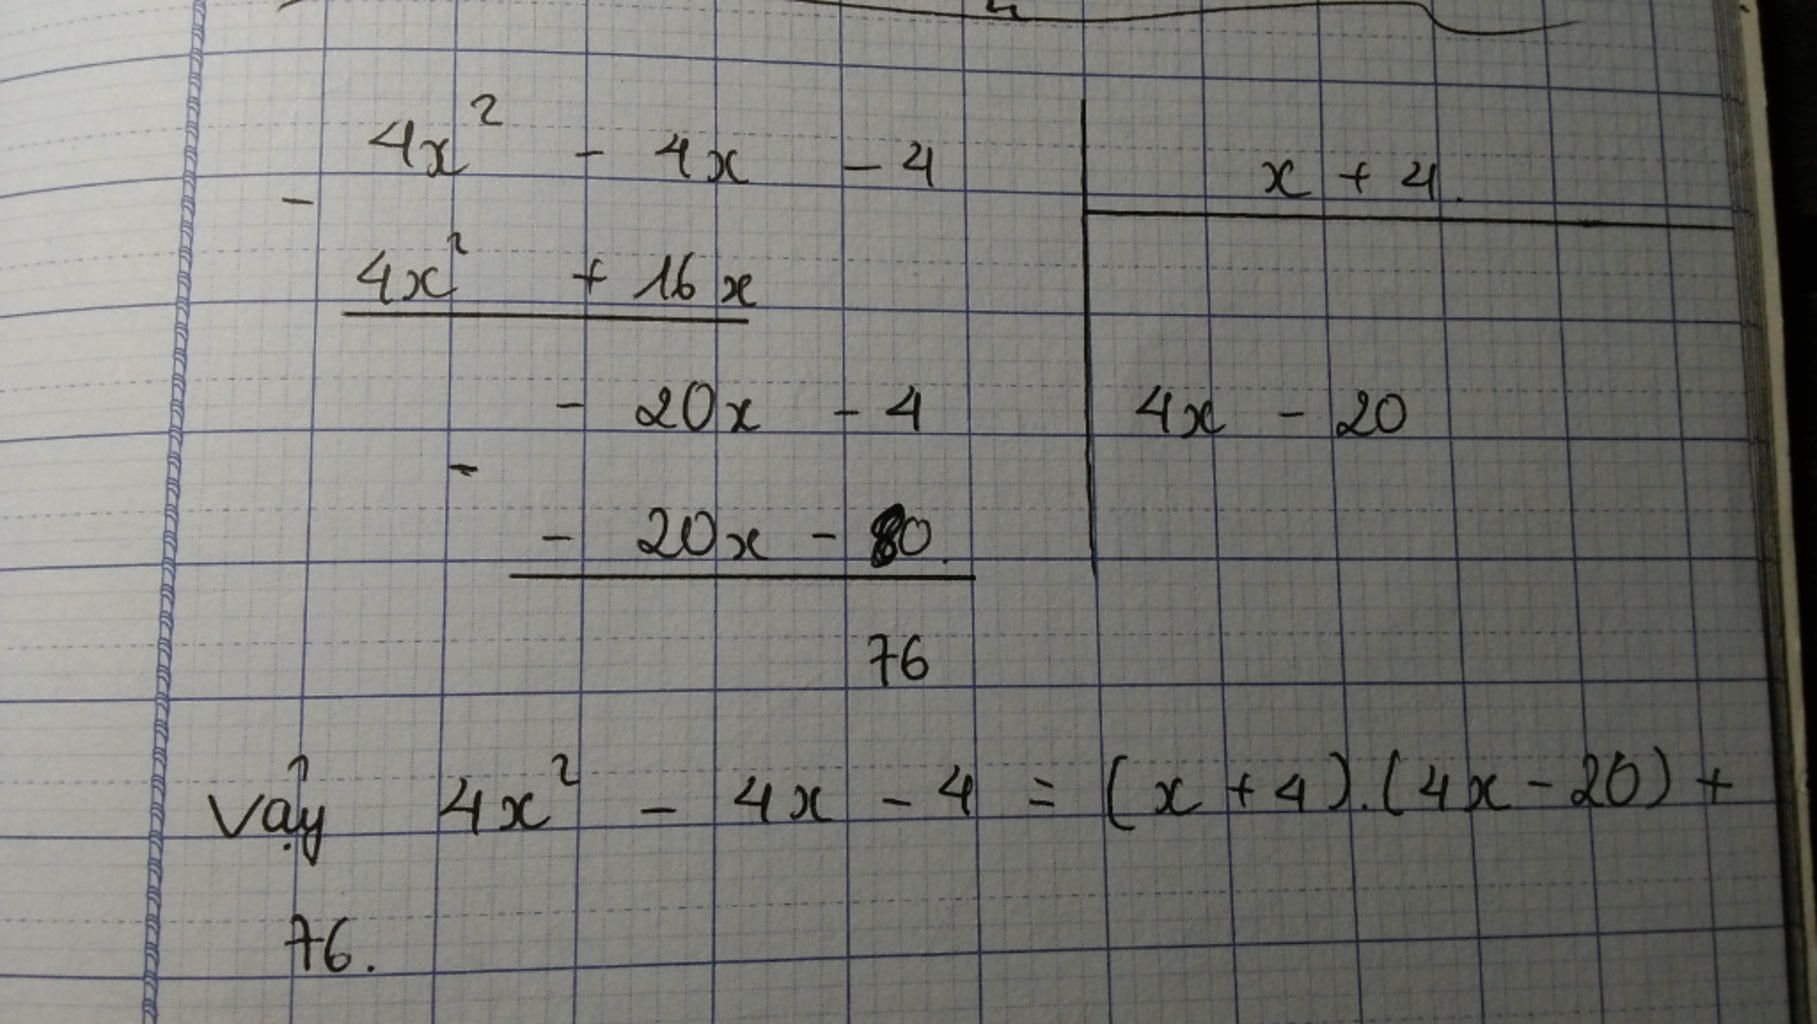 4x² - 4x - 4 | x + 4.
-
4x² + 16x
- 20x - 4 | 4x - 20
-
- 20x - 80.
76
Vậy 4x² - 4x - 4 = (x + 4).(4x - 20) +
76.